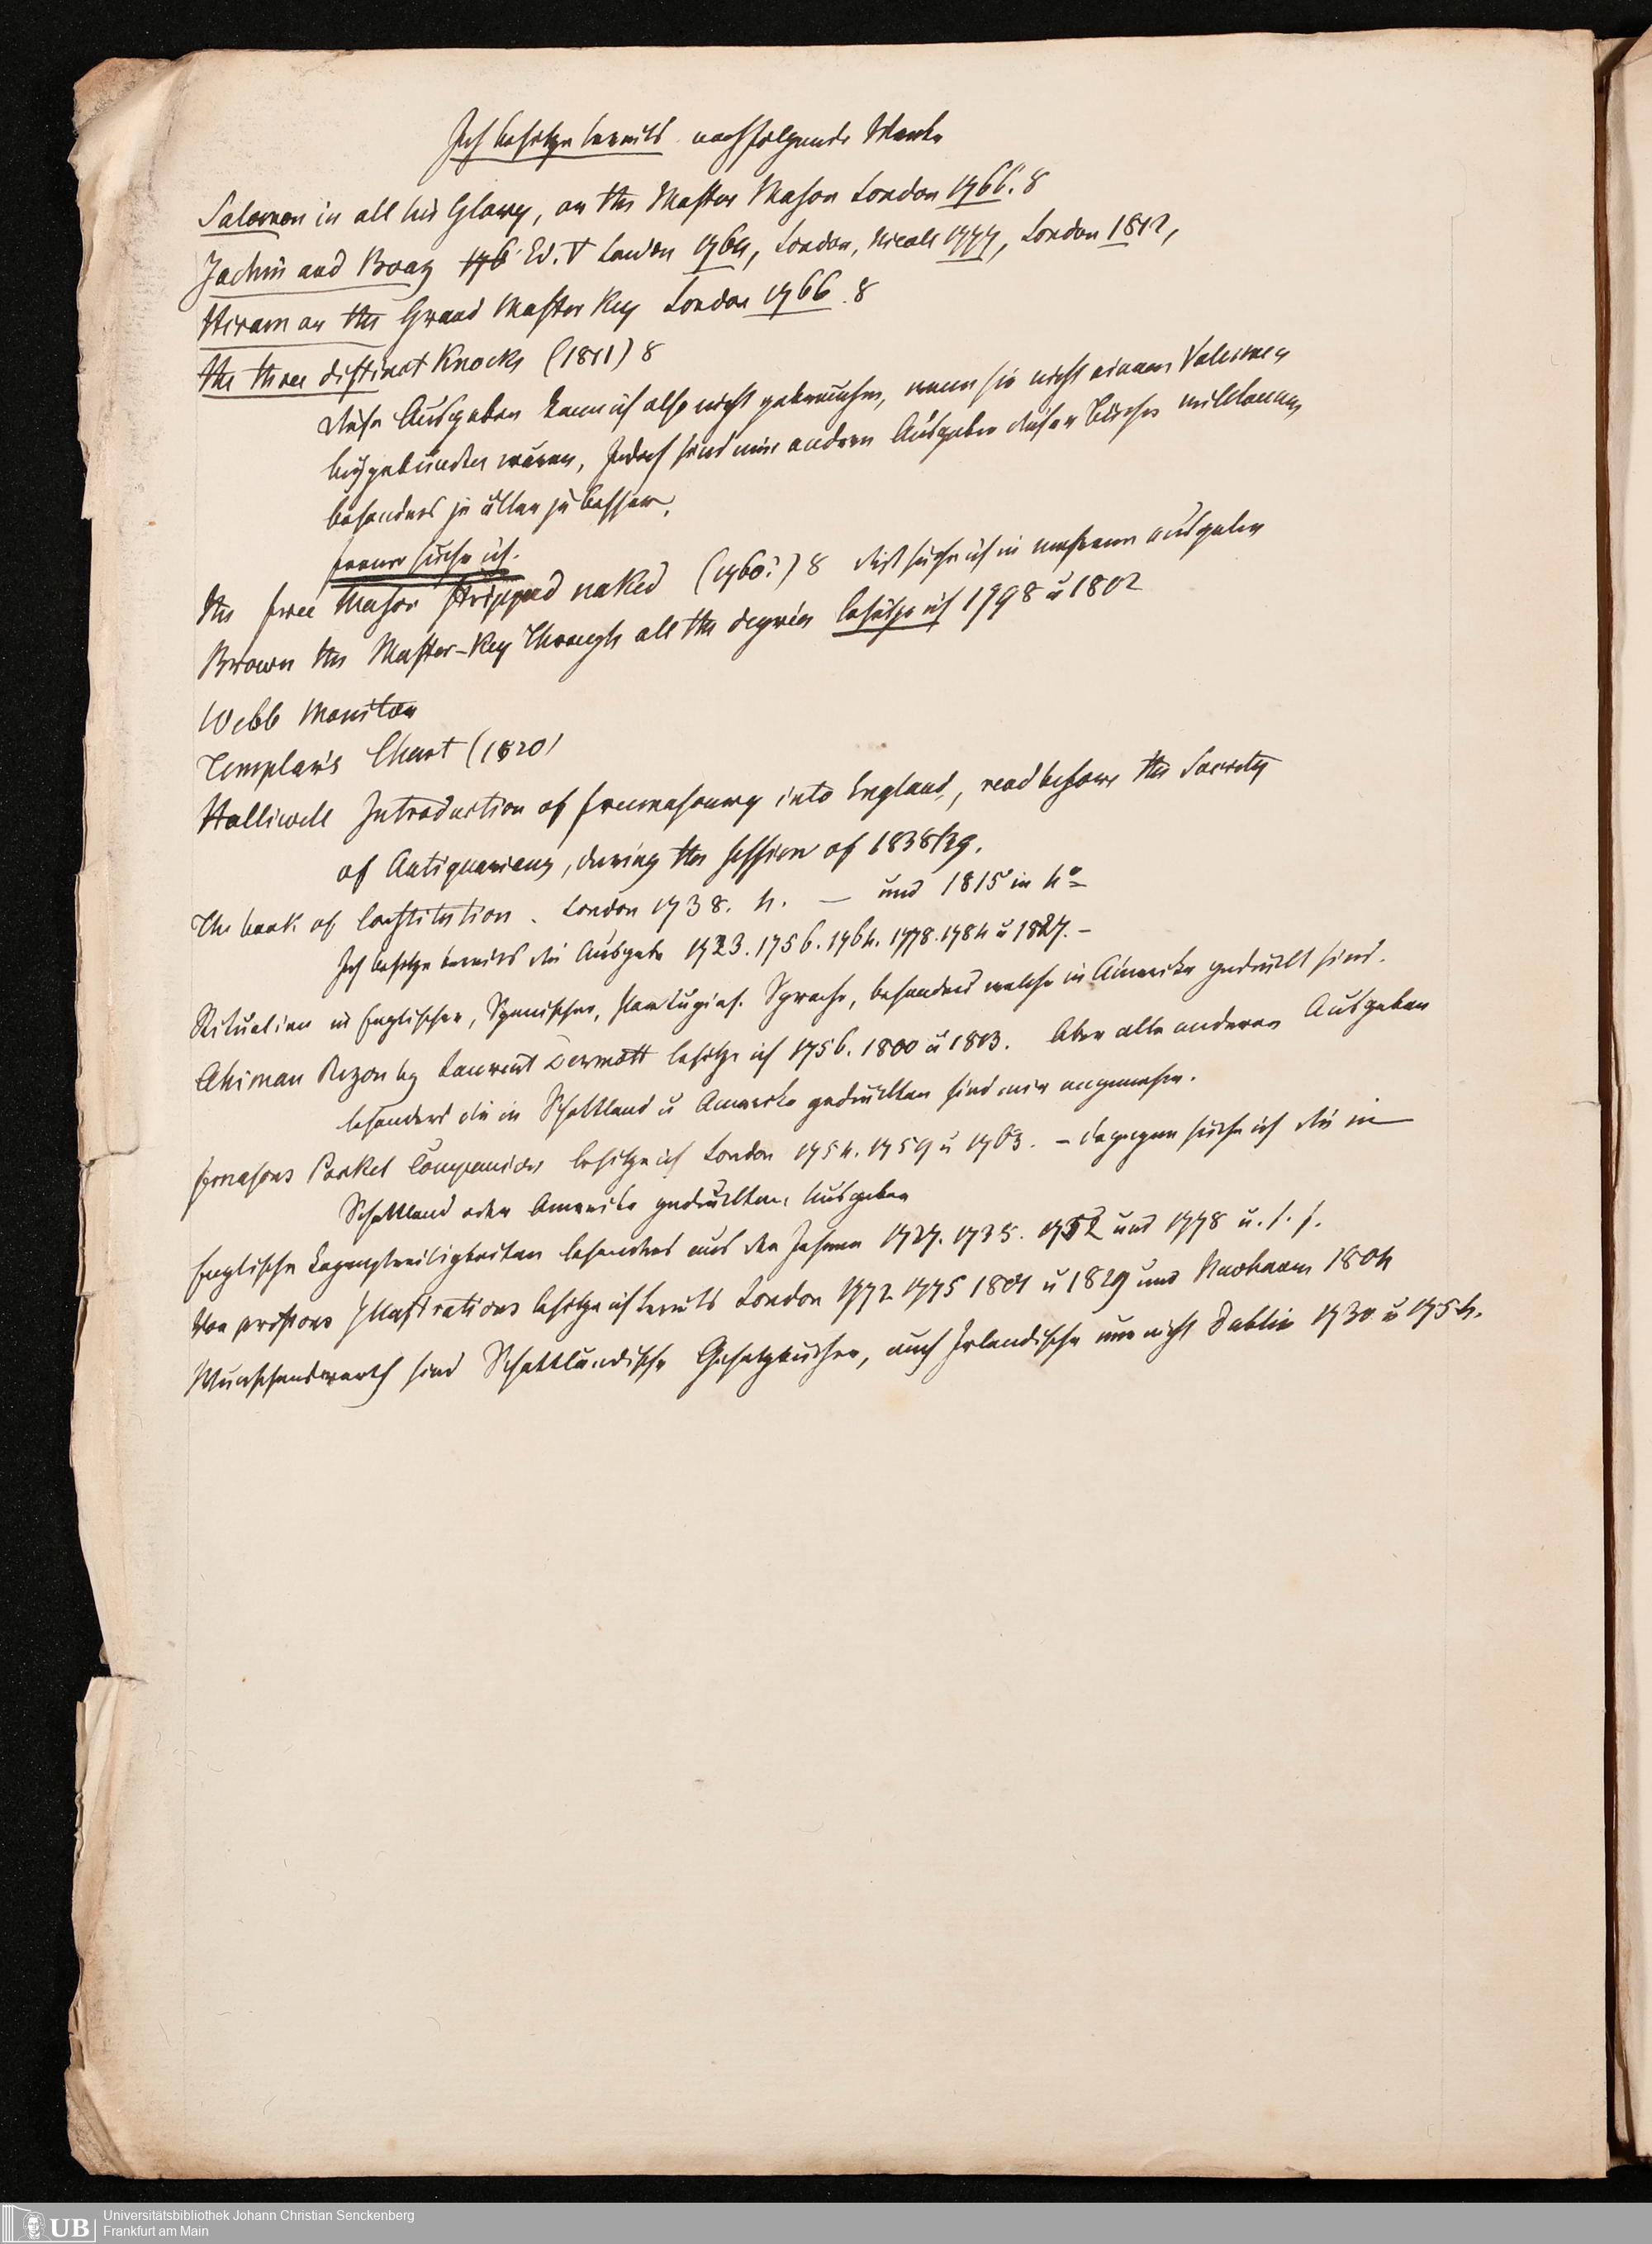 Ich besitze bereits nachfolgende Werke
Salomon in all his Glory, or the Master Mason London 1766. 8
Jachin and Boaz 176 Ed. V London 1764, London, Nicoll 1777, London 1812,
Hiram or the Grand Master Key London 1766. 8
the three distinct Knocks (1811) 8
diese Ausgaben kann ich also nicht gebrauchen, wenn sie nicht einem Volumen
beygebunden wären, Jedoch sind mir andere Ausgaben dieser Bücher willkommen
besonders je älter je besser.
ferner suche ich.
the free Mason stripped naked (1760?) 8 dies suche ich in mehrern ausgaben
Brown the Master-Key through all the degrees besitze ich 1798 u 1802
Webb Monitor
Templar's Chart (1820)
Halliwell Introduction of freemasonry into England, read before the Society
of Antiquarians, during the session of 1838/39.
The book of Constitution. London 1738. 4. — und 1815 in 4o
Ich besitze bereits die Ausgabe 1723. 1756. 1764. 1778. 1784 u 1827. -
Ritualien in Englischer, Spanischer, Portugies. Sprache, besonders welche in Amerika gedruckt sind.
Ahiman Rezon by Laurent Dermott besitze ich 1756. 1800 u 1813. Aber alle anderen Ausgaben
besonders die in Schottland u Amerika gedruckten sind mir angenehm.
frmasons Pocket Companion besitze ich London 1754. 1759 u 1763. - dagegen suche ich die in
Schottland oder Amerika gedruckten Ausgaben
Englische Logenstreitigkeiten besonders aus den Jahren 1727. 1735. 1752 und 1778 u. s. f.
Von prestons Illustrations besitze ich bereits London 1772 1775 1801 u 1829 und 1804
Wünschenswerth sind Schottländische Gesetzbücher, auch Irländische nur nicht Dublin 1730 u 1754.
Universitätsbibliothek Johann Christian Senckenberg
Frankfurt am Main
UB